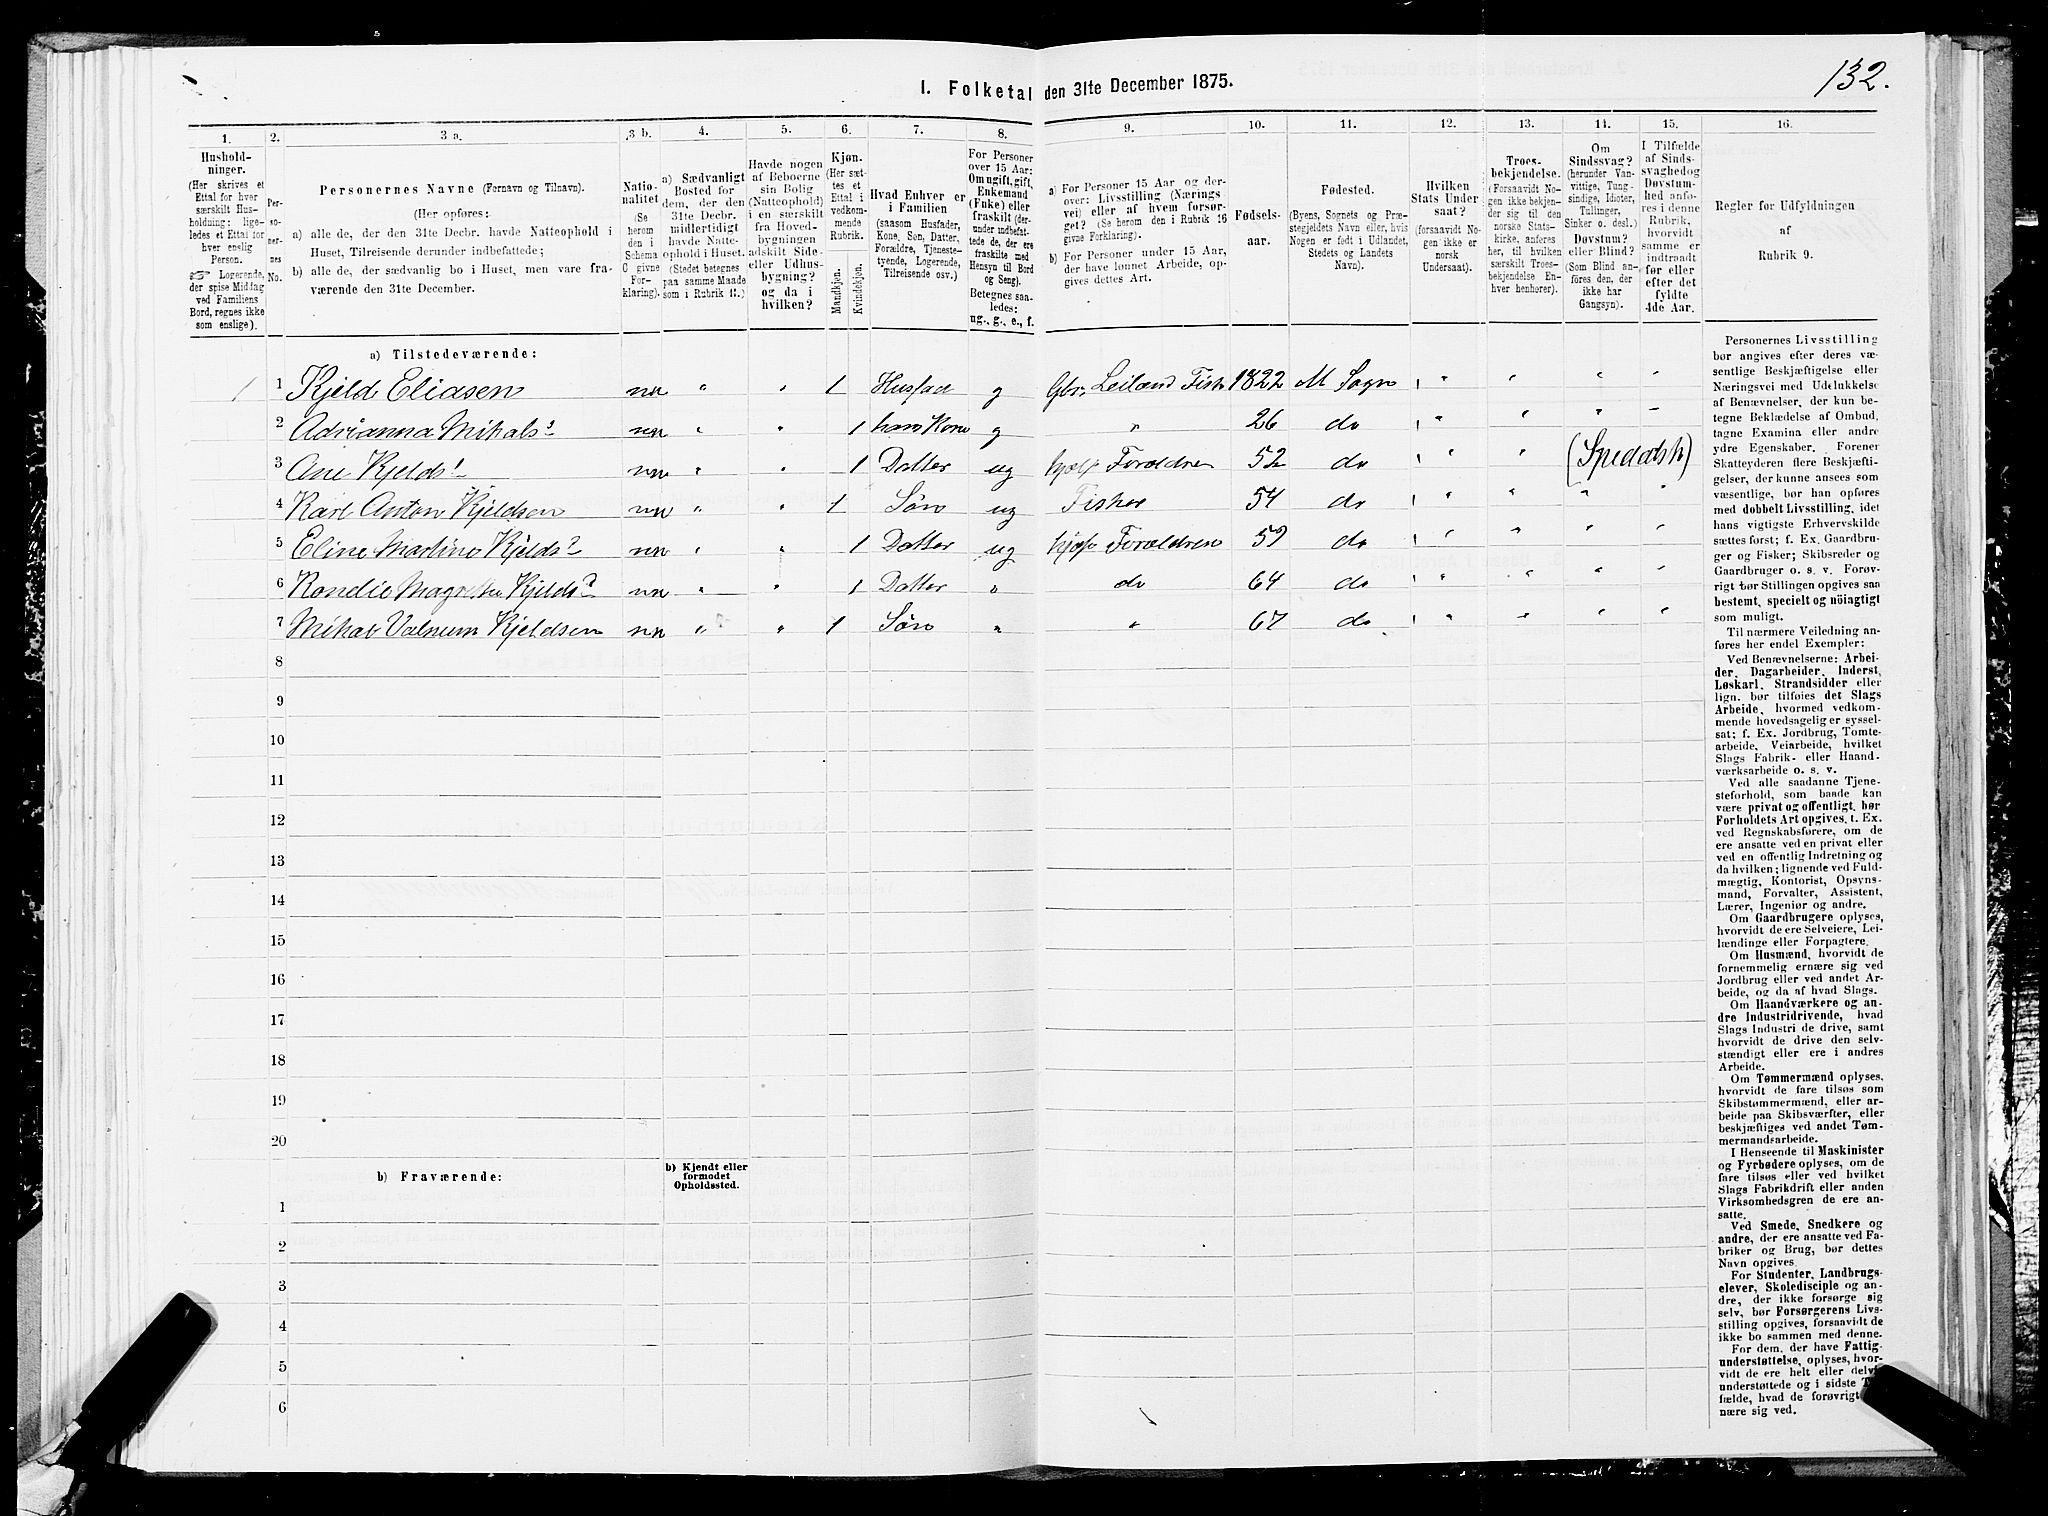 132.
I. Folketal den 31te December 1875.
1. 2. 3 a. 3 b. 4. 5. 6. 7. 8. 9. 10. 11. 12. 13. 14. 15. 16.
Hushold-
ninger.
(Her skrives et
Ettal for hver
særskilt Hus-
holdning: lige-
ledes et Ettal for
hver enslig
Person.
☞ Logerende,
der spise Middag
ved Familiens
Bord, regnes ikke
som enslige).
Per-
so-
ner-
nes
No.
Personernes Navne (Fornavn og Tilnavn).
(Her opføres:
a) alle de, der den 31te Decbr. havde Natteophold i
Huset, Tilreisende derunder indbefattede;
b) alle de, der sædvanlig bo i Huset, men vare fra-
værende den 31te December.
Natio-
nalitet
(Se
herom
den i
Schema
C givne
For-
klaring).
a) Sædvanligt
Bosted for
dem, der den
31te Decbr.
midlertidigt
havde Natte-
ophold i Huset.
(Stedet betegnes
paa samme Maade
som i Rubrik 11.)
Havde nogen
af Beboerne
sin Bolig
(Natteophold)
i en særskilt
fra Hoved-
bygningen
adskilt Side-
eller Udhus-
bygning?
og da i
hvilken?
Kjøn.
(Her sæt-
tes et
Ettal i
vedkom-
mende
Rubrik.
Mandkjøn.
Kvindekjøn.
Hvad Enhver er
i Familien
(saasom Husfader,
Kone, Søn, Datter,
Forældre, Tjeneste-
tyende, Logerende,
Tilreisende osv.)
For Personer
over 15 Aar:
Om ugift, gift,
Enkemand
(Enke) eller
fraskilt (der-
under indbefat-
tede de, der ere
fraskilte med
Hensyn til Bord
og Seng).
Betegnes saa-
ledes:
ug., g., e., f.
a) For Personer 15 Aar og der-
over: Livsstilling (Nærings-
vei) eller af hvem forsør-
get? (Se herom den i Rubrik 16
givne Forklaring).
b) For Personer under 15 Aar,
der have lønnet Arbeide, op-
gives dettes Art.
Fødsels-
aar.
Fødested.
(Byens, Sognets og Præ-
stegjeldets Navn eller, hvis
Nogen er født i Udlandet,
Stedets og Landets
Navn).
Hvilken
Stats Under
saat?
(forsaavidt No-
gen ikke er
norsk
Undersaat).
Troes-
bekjendelse.
(Forsaavidt No-
gen ikke bekjen-
der sig til den
norske Stats-
kirke, anføres
her, til hvilken
særskilt Troes-
bekjendelse En-
hver henhører).
Om
Sindssvag?
(herunder Van-
vittige, Tung-
sindige, Idioter,
Tullinger,
Sinker o. desl.)
Døvstum?
eller Blind?
(Som Blind an-
føres den, der
ikke har
Gangsyn).
I Tilfælde
af Sinds-
svaghed og
Døvstum-
hed anfø-
res i denne
Rubrik,
hvorvidt
samme er
indtraadt
før eller
efter det
fyldte
4de Aar.
Regler for Udfyldningen
af
Rubrik 9.
a) Tilstedeværende:
1 1 Kjeld Eliasen nn " " 1 Husfad g Gbr. Leilænd Fisk 1822 M Sogn
2 Adrianna Mikals? nn " " 1 hans Kone g " 26 do
3 Ane Kjelds? nn " " 1 Datter ug hjelp Forældren 52 do (Spedalsk)
4 Karl Anton Kjeldsen nn " " 1 Søn ug Fisker 54 do
5 Eline Martine Kjelds? nn " " 1 Datter ug hjelp Forældren 59 do
6 Magrethe Kjelds? nn " " 1 Datter " do 64 do
7 Mikal Kjeldsen nn " " 1 Søn " " 67 do
8
9
10
11
12
13
14
15
16
17
18
19
20
b) Fraværende:
b) Kjendt eller
formodet
Opholdssted.
1
2
3
4
5
6
Personernes Livsstilling
bør angives efter deres væ-
sentlige Beskjæftigelse eller
Næringsvei med Udelukkelse
af Benævnelser, der kun be-
tegne Beklædelse af Ombud,
tagne Examina eller andre
ydre Egenskaber. Forener
Skatteyderen flere Beskjæfti-
gelser, der kunne ansees som
væsentlige, bør han opføres
med dobbelt Livsstilling, idet
hans vigtigste Erhvervskilde
sættes først; f. Ex. Gaardbru-
ger og Fisker; Skibsreder og
Gaardbruger o. s. v. Forøv-
rigt bør Stillingen opgives saa
bestemt, specielt og nöiagtigt
som muligt.
Til nærmere Veiledning an-
føres her endel Exempler:
Ved Benævnelserne: Arbei-
der, Dagarbeider, Inderst,
Løskarl, Strandsidder eller
lign. bør tilføies det Slags
Arbeide, hvormed vedkom-
mende hovedsagelig er syssel-
sat; f. Ex. Jordbrug, Tomte-
arbeide, Veiarbeide, hvilket
Slags Fabrik- eller Haand-
værksarbeide o. s. v.
Ved alle saadanne Tjene-
steforhold, som baade kan
være privat og offentligt, bør
Forholdets Art opgives, t. Ex.
ved Regnskabsførere, om de
ere ansatte ved en privat eller
ved en offentlig Indretning og
da hvilken; lignende ved Fuld-
mægtig, Kontorist, Opsyns-
mand, Forvalter, Assistent,
Lærer, Ingeniør og andre.
Om Gaardbrugere oplyses,
hvorvidt de ere Selveiere, Lei-
lændinge eller Forpagtere.
Om Husmænd, hvorvidt de
fornemmelig ernære sig ved
Jordbrug eller ved andet Ar-
beide, og da af hvad Slags.
Om Haandværkere og an-
dre Industridrivende, hvad
Slags Industri de drive, samt
hvorvidt de drive den selv-
stændigt eller ere i andres
Arbeide.
Om Tømmermænd oplyses,
hvorvidt de fare tilsøs som
Skibstømmermænd, eller ar-
beide paa Skibsværfter, eller
beskjæftiges ved andet Tøm-
mermandsarbeide.
I Henseende til Maskinister
og Fyrbødere oplyses, om de
fare tilsøs eller ved hvilket
Slags Fabrikdrift eller anden
Virksomhedsgren de ere an-
satte.
Ved Smede, Snedkere og
andre, der ere ansatte ved Fa-
briker og Brug, bør dettes
Navn opgives.
For Studenter, Landbrugs-
elever, Skoledisciple og an-
dre, der ikke forsørge sig
selv, bør Forsørgerens Livs-
stilling opgives, forsaavidt de
ikke bo sammen med denne.
For dem, der have Fattig-
understøttelse, oplyses, hvor-
vidt de ere helt eller delvis
understøttede og i sidste
fælde, hvad de forøvrigt
nære sig ved.